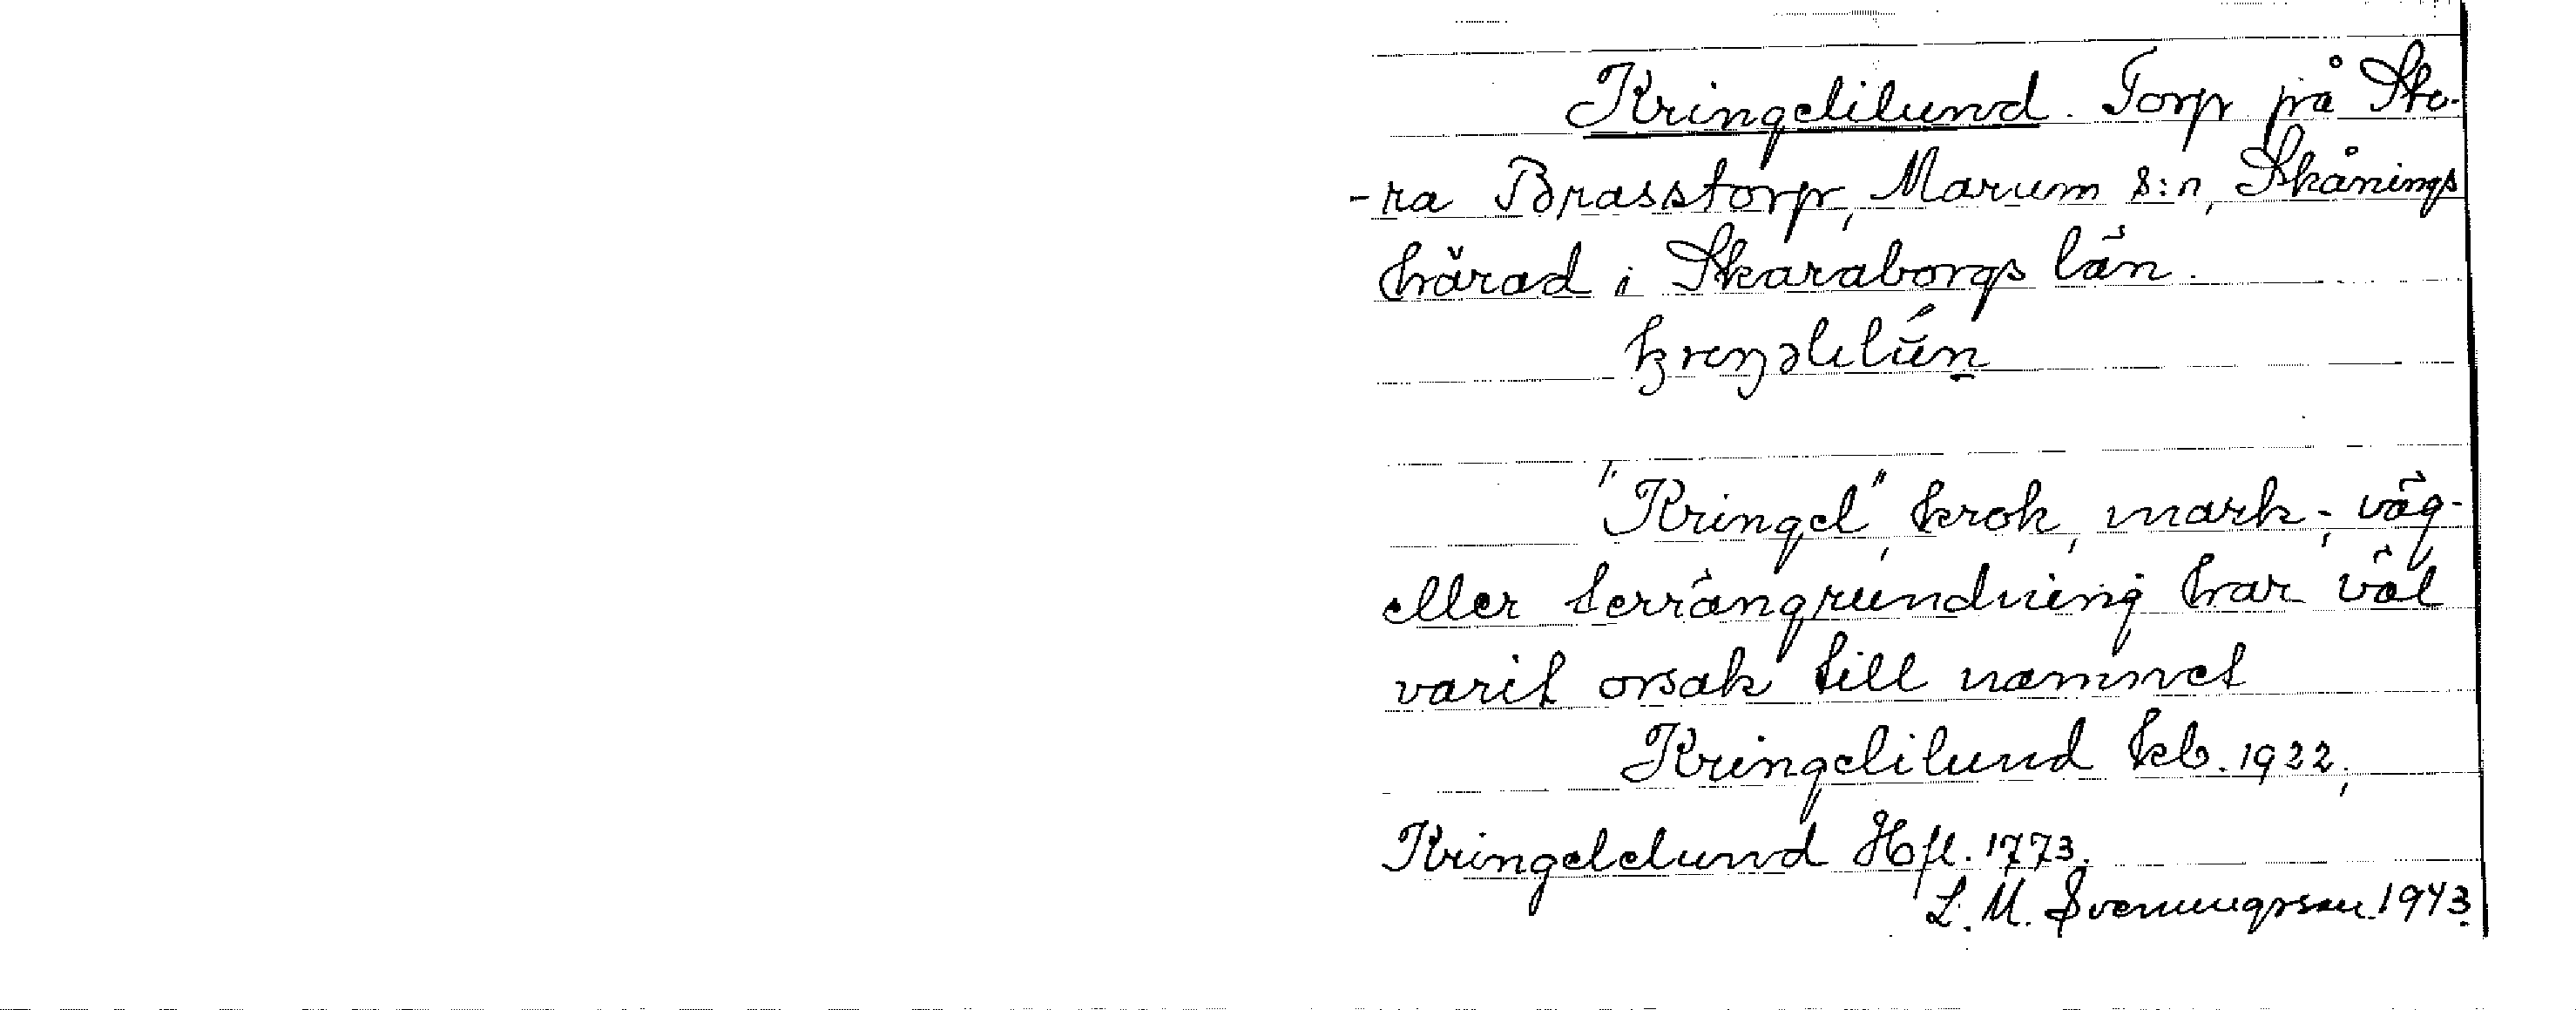 Kringelilund. Torp på Sto-
-ra Brasstorp, Marum s:n, Skånings
härad i Skaraborgs län.
"Kringel", krok, mark-, väg-
eller terrängrundning har väl
varit orsak till namnet
Kringelilund kb. 1922,
Kringelelund Hfl. 1773.
L. M. Svenungsson 1943.